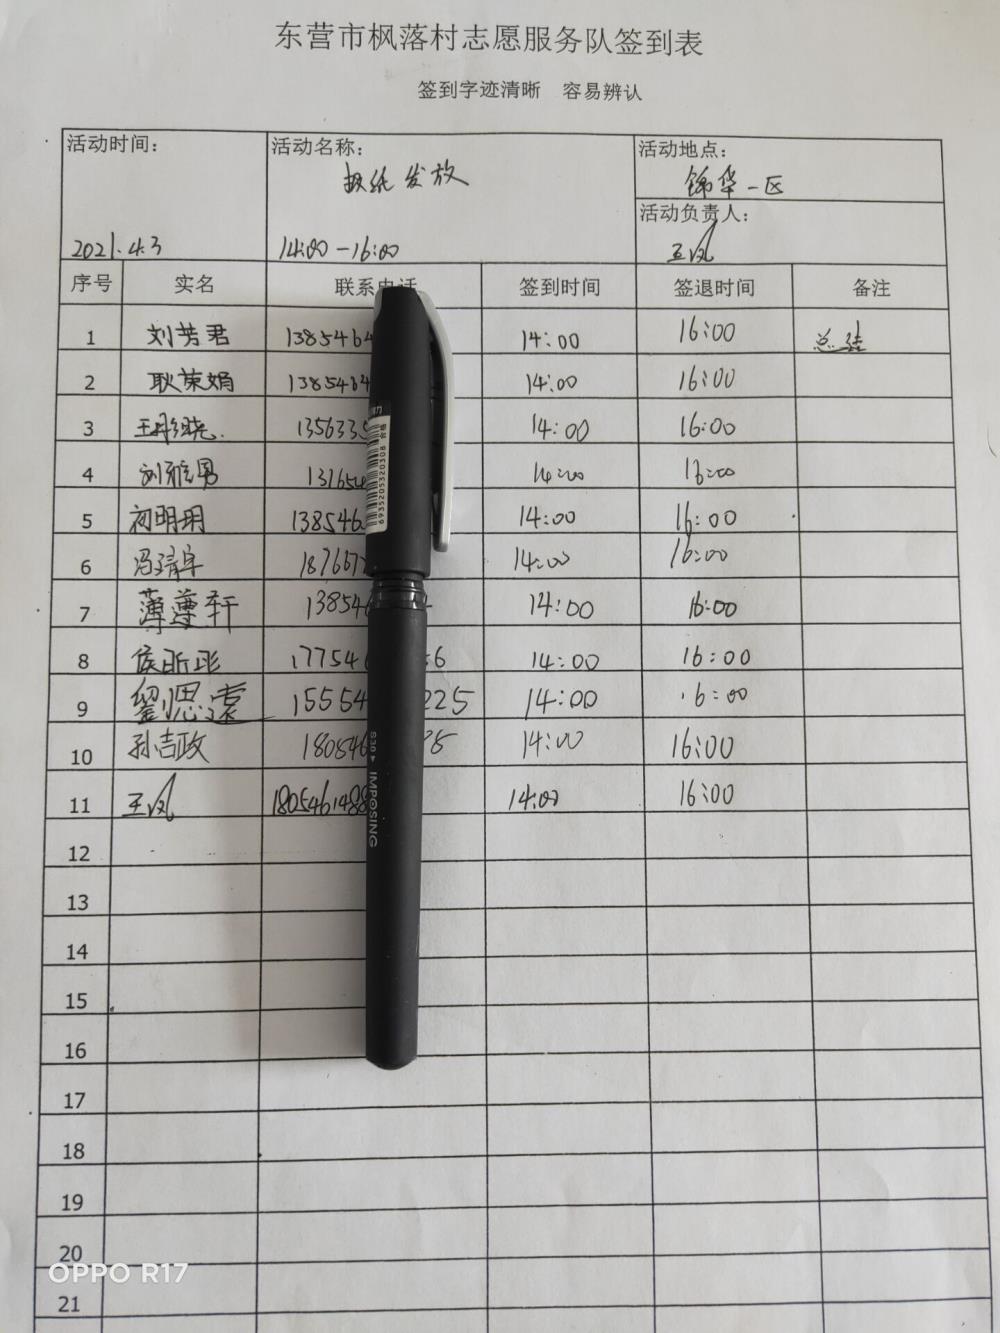 东营市枫落村志愿服务队签到表
签到字迹清晰 容易辨认
活动时间： 活动名称： 活动地点：
报纸发放 锦华一区
活动负责人：
2021.4.3 14:00-16:00 王凤
序号 实名 联系电话 签到时间 签退时间 备注
1 刘芳君 1385464 14:00 16:00 总结
2 耿荣娟 1385464 14:00 16:00
3 135633 14:00 16:00
4 13165 14:00 16:00
5 初明玥 138546 14:00 16:00
6 冯靖宇 18766 14:00 16:00
7 薄尊轩 13854 14:00 16:00
8 侯昕彤 177546 6 14:00 16:00
9 劉思遠 15554 225 14:00 16:00
10 孙吉政 180546 14:00 16:00
11 王凤 1805461488 14:00 16:00
12
13
14
15
16
17
18
19
20
21
6935205320308 合格
S30 IMPOSING
OPPO R17